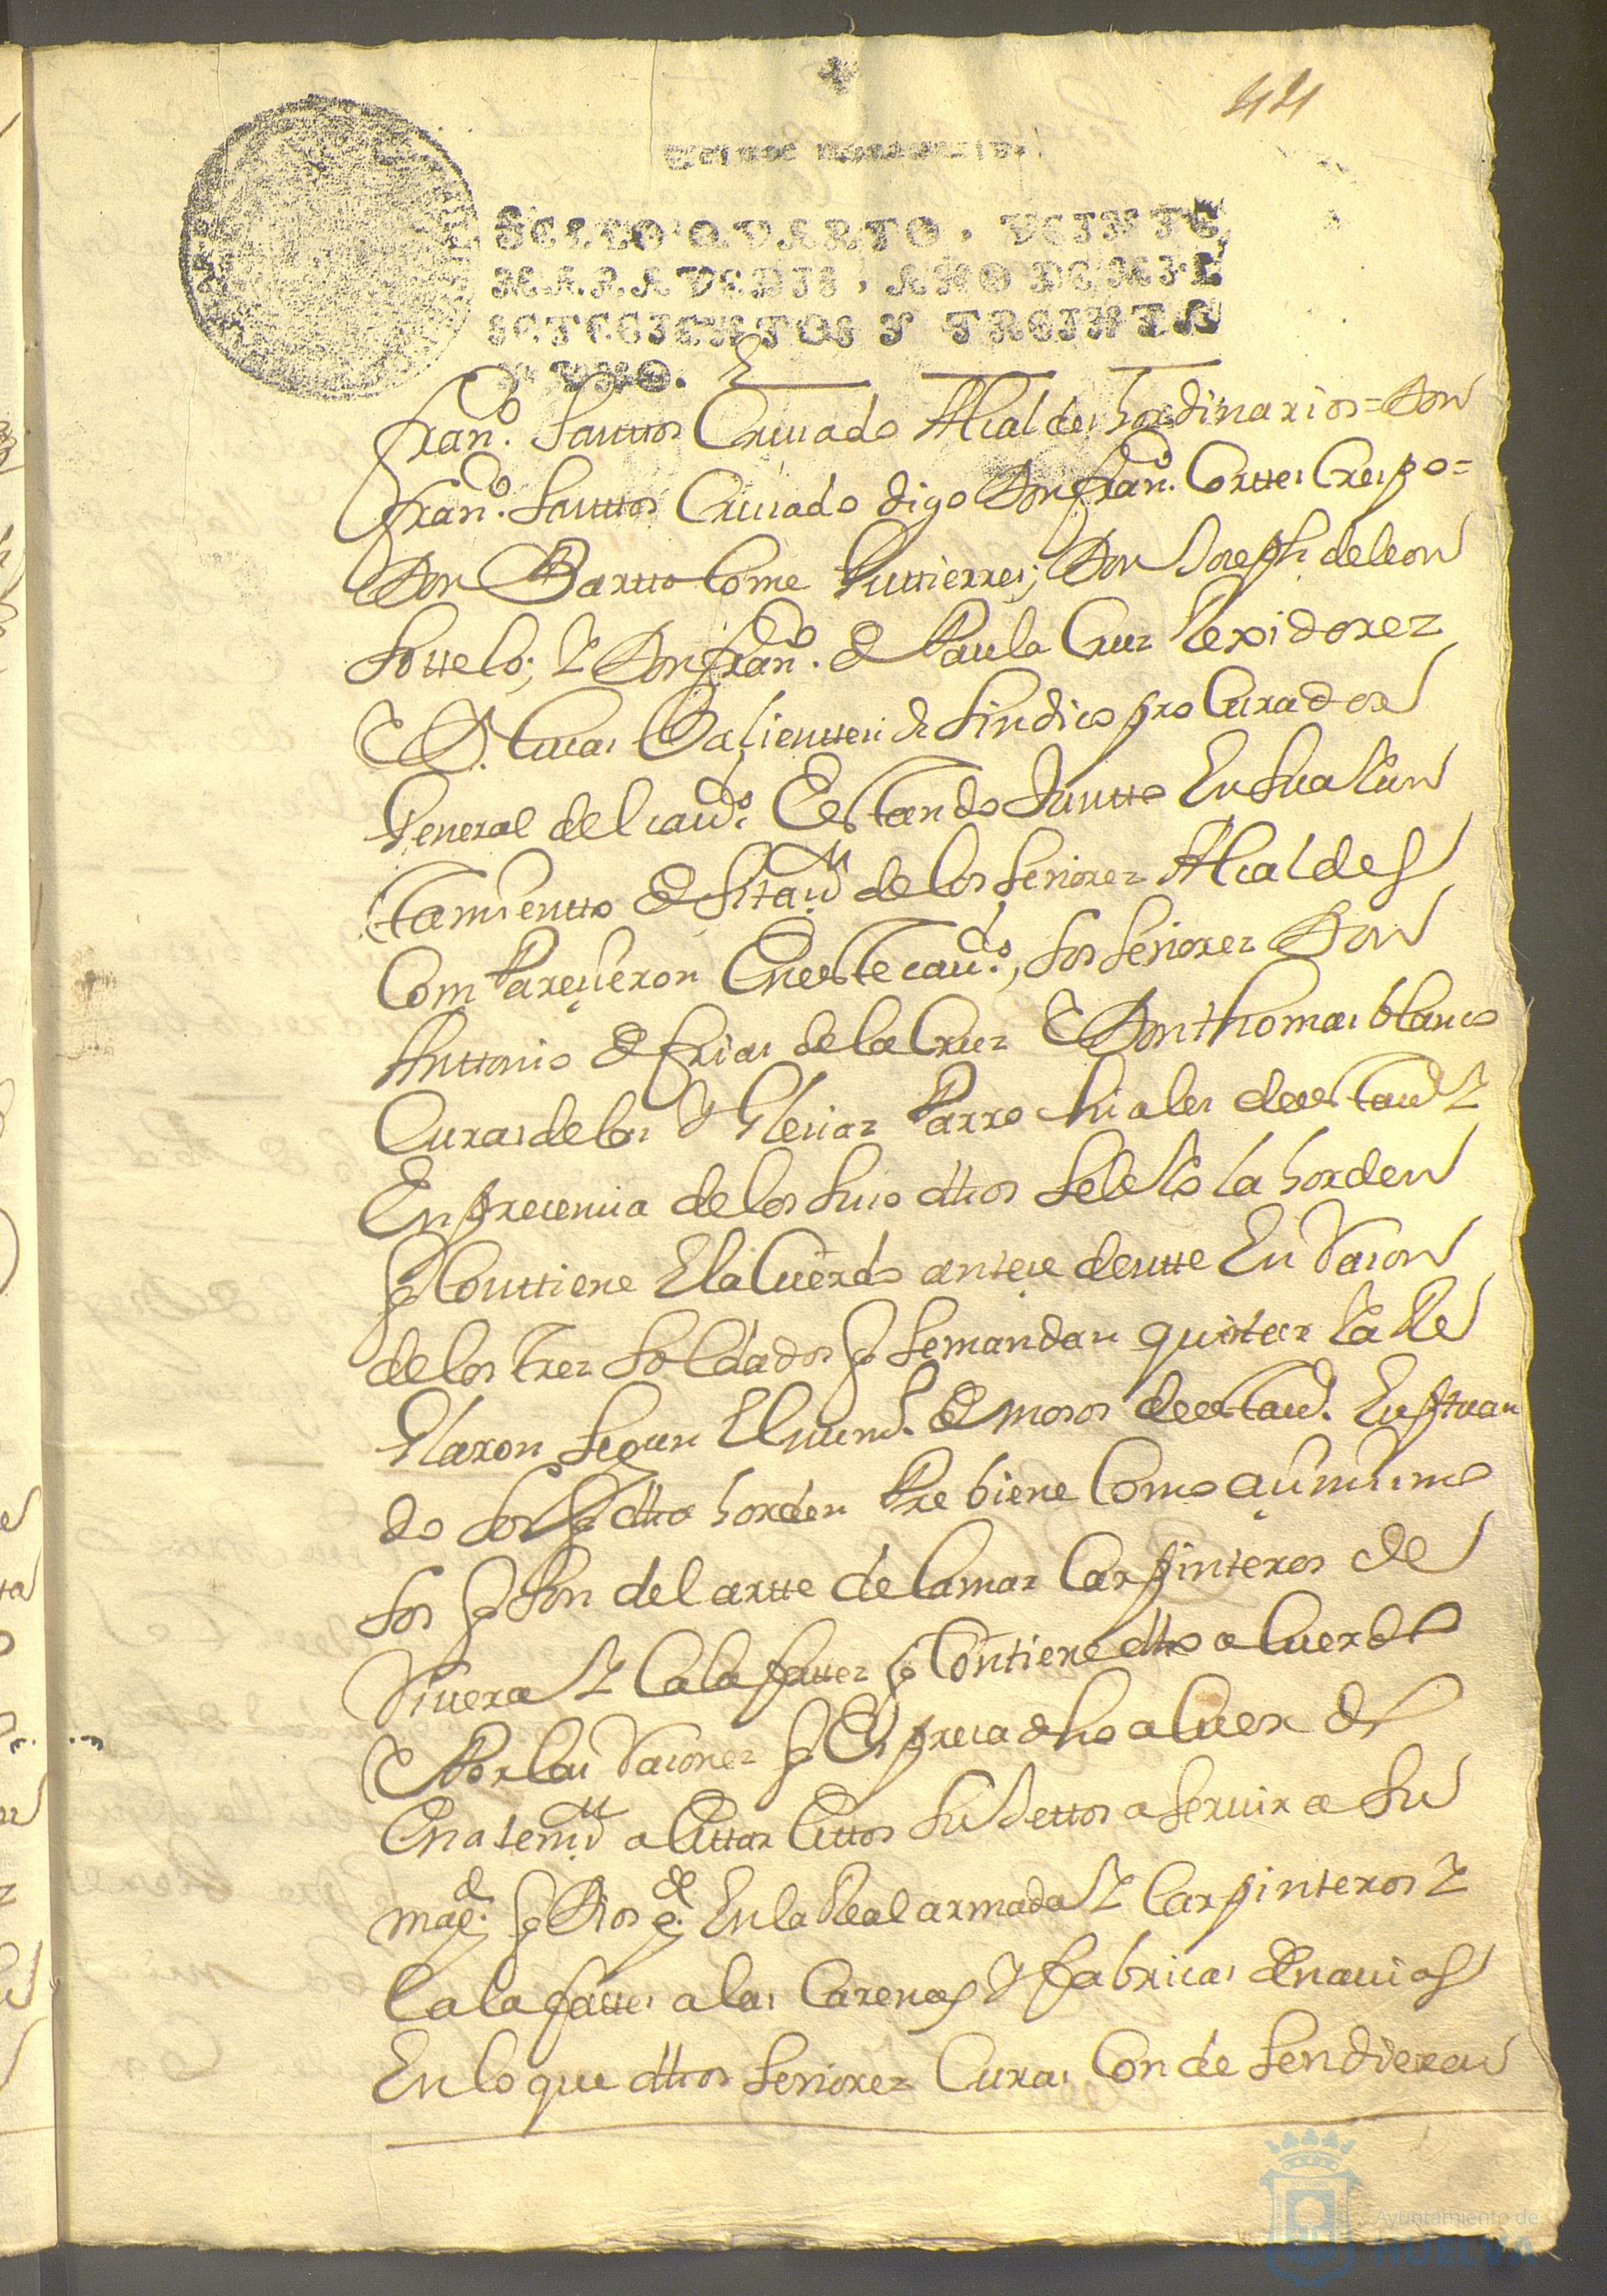 424
Veinte maravedis.
SELLO QVARTO, VEINTE
MARAVEDIS, AÑO DE MIL
SETECIENTOS Y TREINTA
Y VNO.
fran.co Santtos Criuado Alcaldes hordinarios = Don
fran.co Santtos Criuado digo Don fran.co Corttes Crespo =
Don Barttolome Guttierres; Don Joseph de leon
Sottelo; Y Don fran.co de Paula Cruz Rexidorez
E D. Lucas Basienttes Sindico procurador
General del cauds.o Estando Juntto En su aiun
tamientto de Sitaz.on de los Señorez Alcaldes
Comparecieron En este cauds.o, los Señorez Don
Anttonio de frias de la Cruz E Don thomas blanco
Curas de las Yglecias Parrochiales de esta ud.a Y
En precencia de los suso dhos Se leio la horden
q Conttiene El aCuerdo antecedentte En Racon
de los trez Soldados q Se mandan quintar Y a Re
Glaron Segun El num.o de mosos de esta ud.a Ensttuan
do los q dha horden Prebiene Como acimimo
los q Son del artte de la mar Carpinteros de
Riuera Y Calafattez q Contiene dho aCuerdo
E Por las Racones q Espreca dho aCuerdo
En atenz.on a Esttar Esttos Sujettos a Seruir a Su
mag.d q Dios g.de En la Real armada Y Carpinteros Y
Calafattes a las Carenas Y fabricas de nauios
En lo que dhos Señorez Curas Condesendieron
Ayuntamiento de
HUELVA